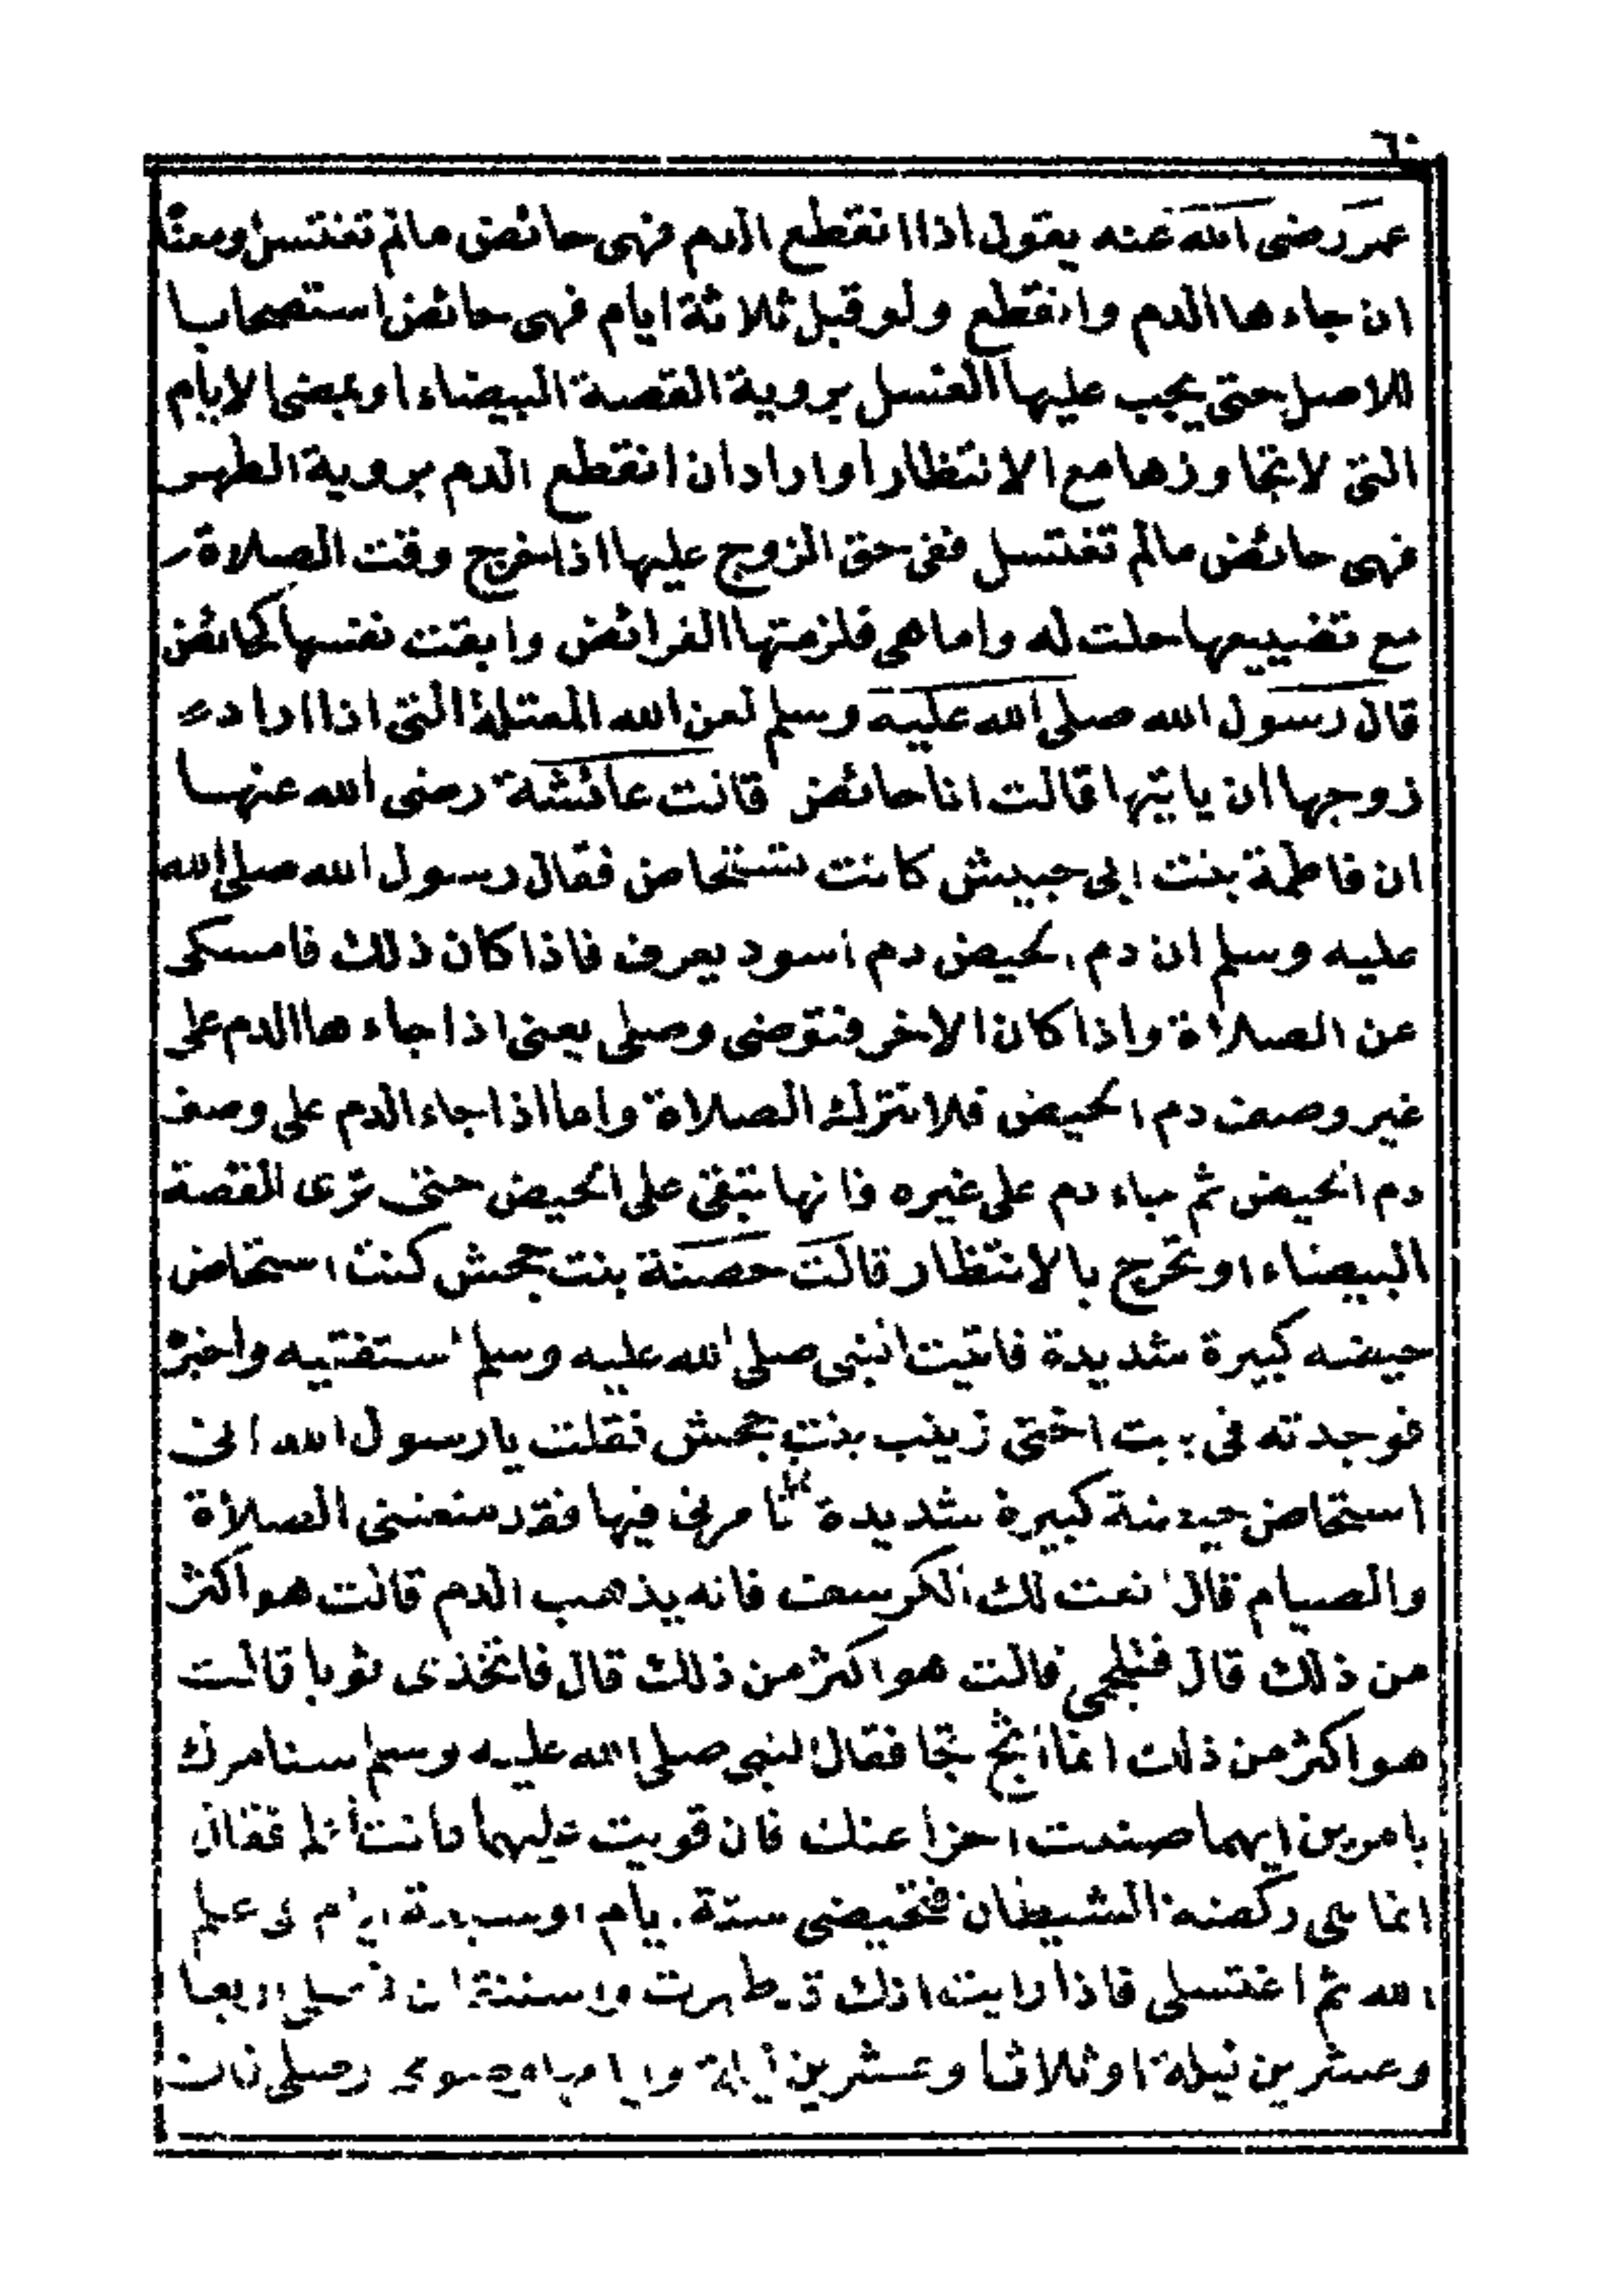 ٦٠
عمر رضى الله عنه يقول اذا انقطع الدم فهى حائض مالم تغتسل ومعنا
ان جاءها الدم وانقطع ولو قبل ثلاثة ايام فهى حائض استصحابا
للاصل حتى يجب عليها الغسل بروية القصة البيضاء او بمضى الايام
التى لا تجاوزها مع الانتظار او اراد ان انقطع الدم بروية الطهر
فهى حائض مالم تغتسل ففى حق الزوج عليها اذا خرج وقت الصلاة
مع تضييعها حلت له واما هى فلزمتها الفرائض وابقت نفسها كحائض
قال رسول الله صلى الله عليه وسلم لعن الله المعتلة التى اذا اراد
زوجها ان ياتيها قالت انا حائض قالت عائشة رضى الله عنها
ان فاطمة بنت ابى حبيش كانت تستحاض فقال رسول الله صلى الله
عليه وسلم ان دم الحيض دم اسود يعرف فاذا كان ذلك فامسكى
عن الصلاة واذا كان الاخر فتوضى وصلى يعنى اذا جاءها الدم على
غير وصف دم الحيض فلا تترك الصلاة واما اذا جاء الدم على وصف
دم الحيض ثم جاء دم على غيره فانها تبقى على الحيض حتى ترى القصة
البيضاء او تخرج بالانتظار قالت حصنة بنت جحش كنت استحاض
حيضه كبيرة شديدة فاتيت النبى صلى الله عليه وسلم استفتيه واخبر
فوجدته فى بيت اختى زينب بنت جحش فقلت يا رسول الله انى
استحاض حيضة كبيرة شديدة تامرنى فيها فقد منعتنى الصلاة
والصيام قال انعت لك الكرسف فانه يذهب الدم قالت هو اكثر
من ذلك قال فتلجمى قالت هو اكثر من ذلك قال فاتخذى ثوبا قالت
هو اكثر من ذلك انما اثج ثجا فقال النبى صلى الله عليه وسلم سنامرك
بامرين ايهما صنعت اجزا عنك فان قويت عليهما فانت اعلم فقال
انما هى ركضة الشيطان فتحيضى ستة ايام او سبعة ايام فى علم
الله ثم اغتسلى فاذا رايت انك قد طهرت فصلى اربعا
وعشرين ليلة او ثلاثا وعشرين ليلة وايامها وصومى وصلى فان